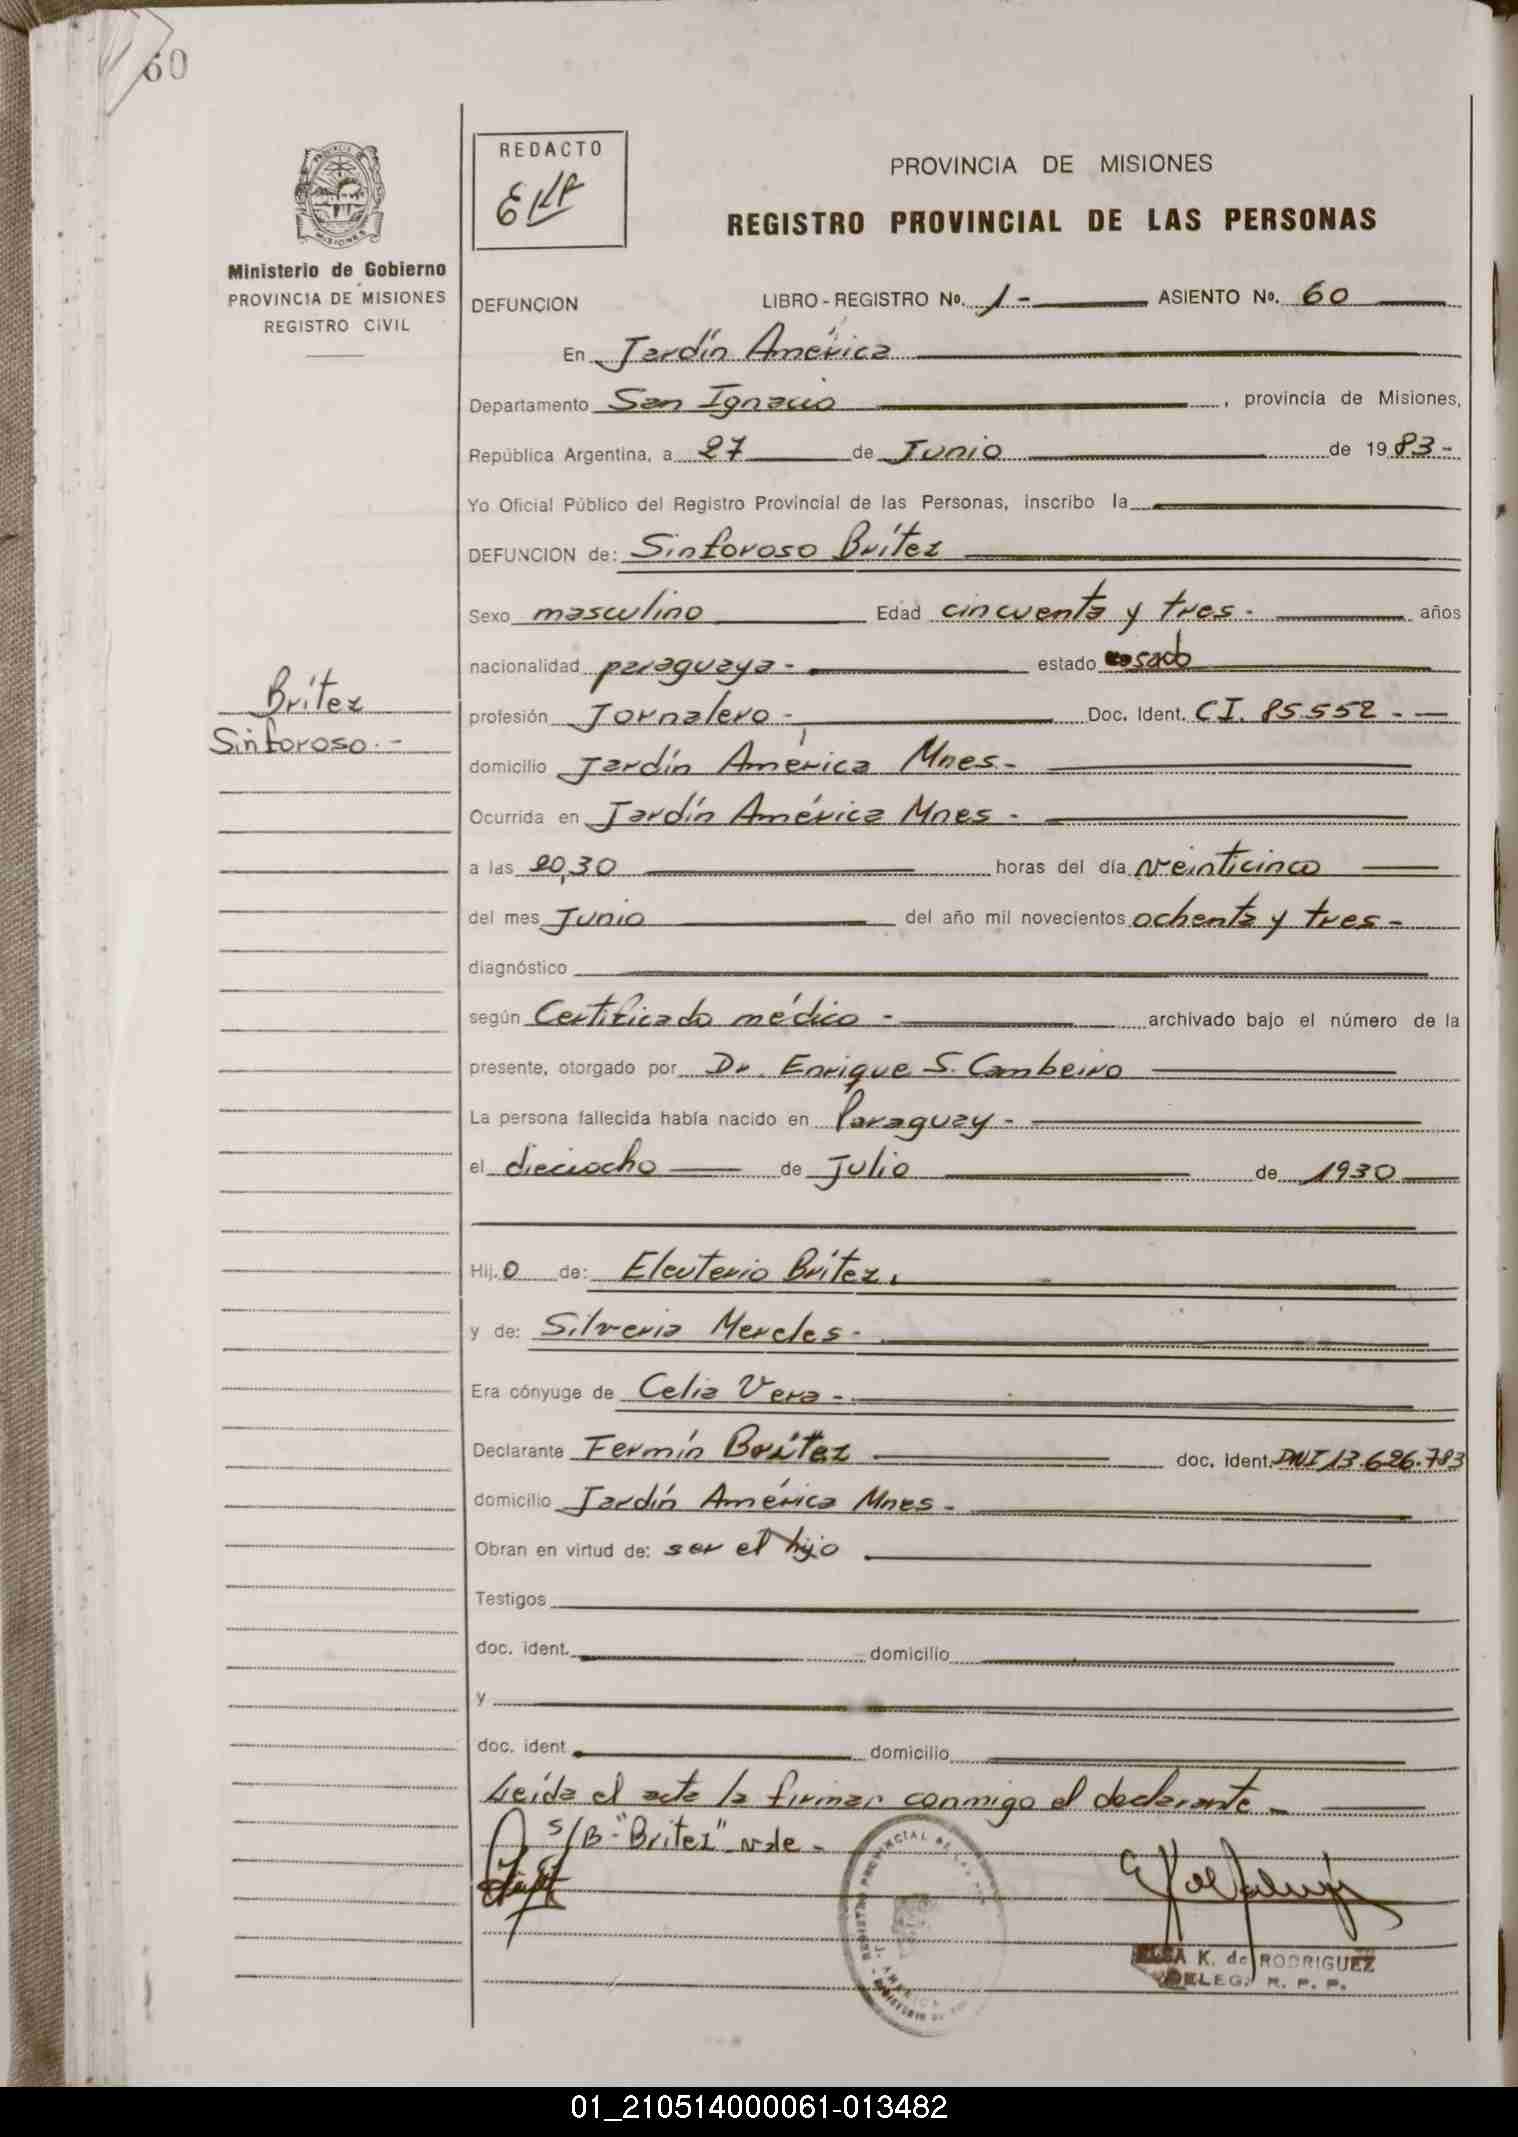 60
REDACTO
EKR
PROVINCIA DE MISIONES
REGISTRO PROVINCIAL DE LAS PERSONAS
Ministerio de Gobierno
PROVINCIA DE MISIONES
REGISTRO CIVIL
DEFUNCION LIBRO - REGISTRO No. 1 - ASIENTO No. 60
En Jardín América
Departamento San Ignacio, provincia de Misiones,
República Argentina, a 27 de Junio de 1983-
Yo Oficial Público del Registro Provincial de las Personas, inscribo la
DEFUNCION de: Sinforoso Brítez
Sexo masculino Edad cincuenta y tres - años
nacionalidad paraguaya - estado casado
Brítez
Sinforoso. -
profesión Jornalero - Doc. Ident. CI. 85552 - -
domicilio Jardín América Mnes -
Ocurrida en Jardín América Mnes -
a las 20,30 horas del día veinticinco
del mes Junio del año mil novecientos ochenta y tres -
diagnóstico
según Certificado médico - archivado bajo el número de la
presente, otorgado por Dr. Enrique S. Cambeiro
La persona fallecida había nacido en Paraguay -
el dieciocho de Julio de 1930
Hij.o de: Eleuterio Brítez.
y de: Silveria Mereles -
Era cónyuge de Celia Vera -
Declarante Fermín Brítez doc. ident. DNI 13.626.783
domicilio Jardín América Mnes -
Obran en virtud de: ser el hijo
Testigos
doc. ident. domicilio
y
doc. ident domicilio
Leída el acta la firman conmigo el declarante -
s/B - "Britez" vale -
REGISTRO PROVINCIAL DE LAS
J. AMERICA
MINISTERIO DE
ELSA K. de RODRIGUEZ
DELEG. R. P. P.
01_210514000061-013482